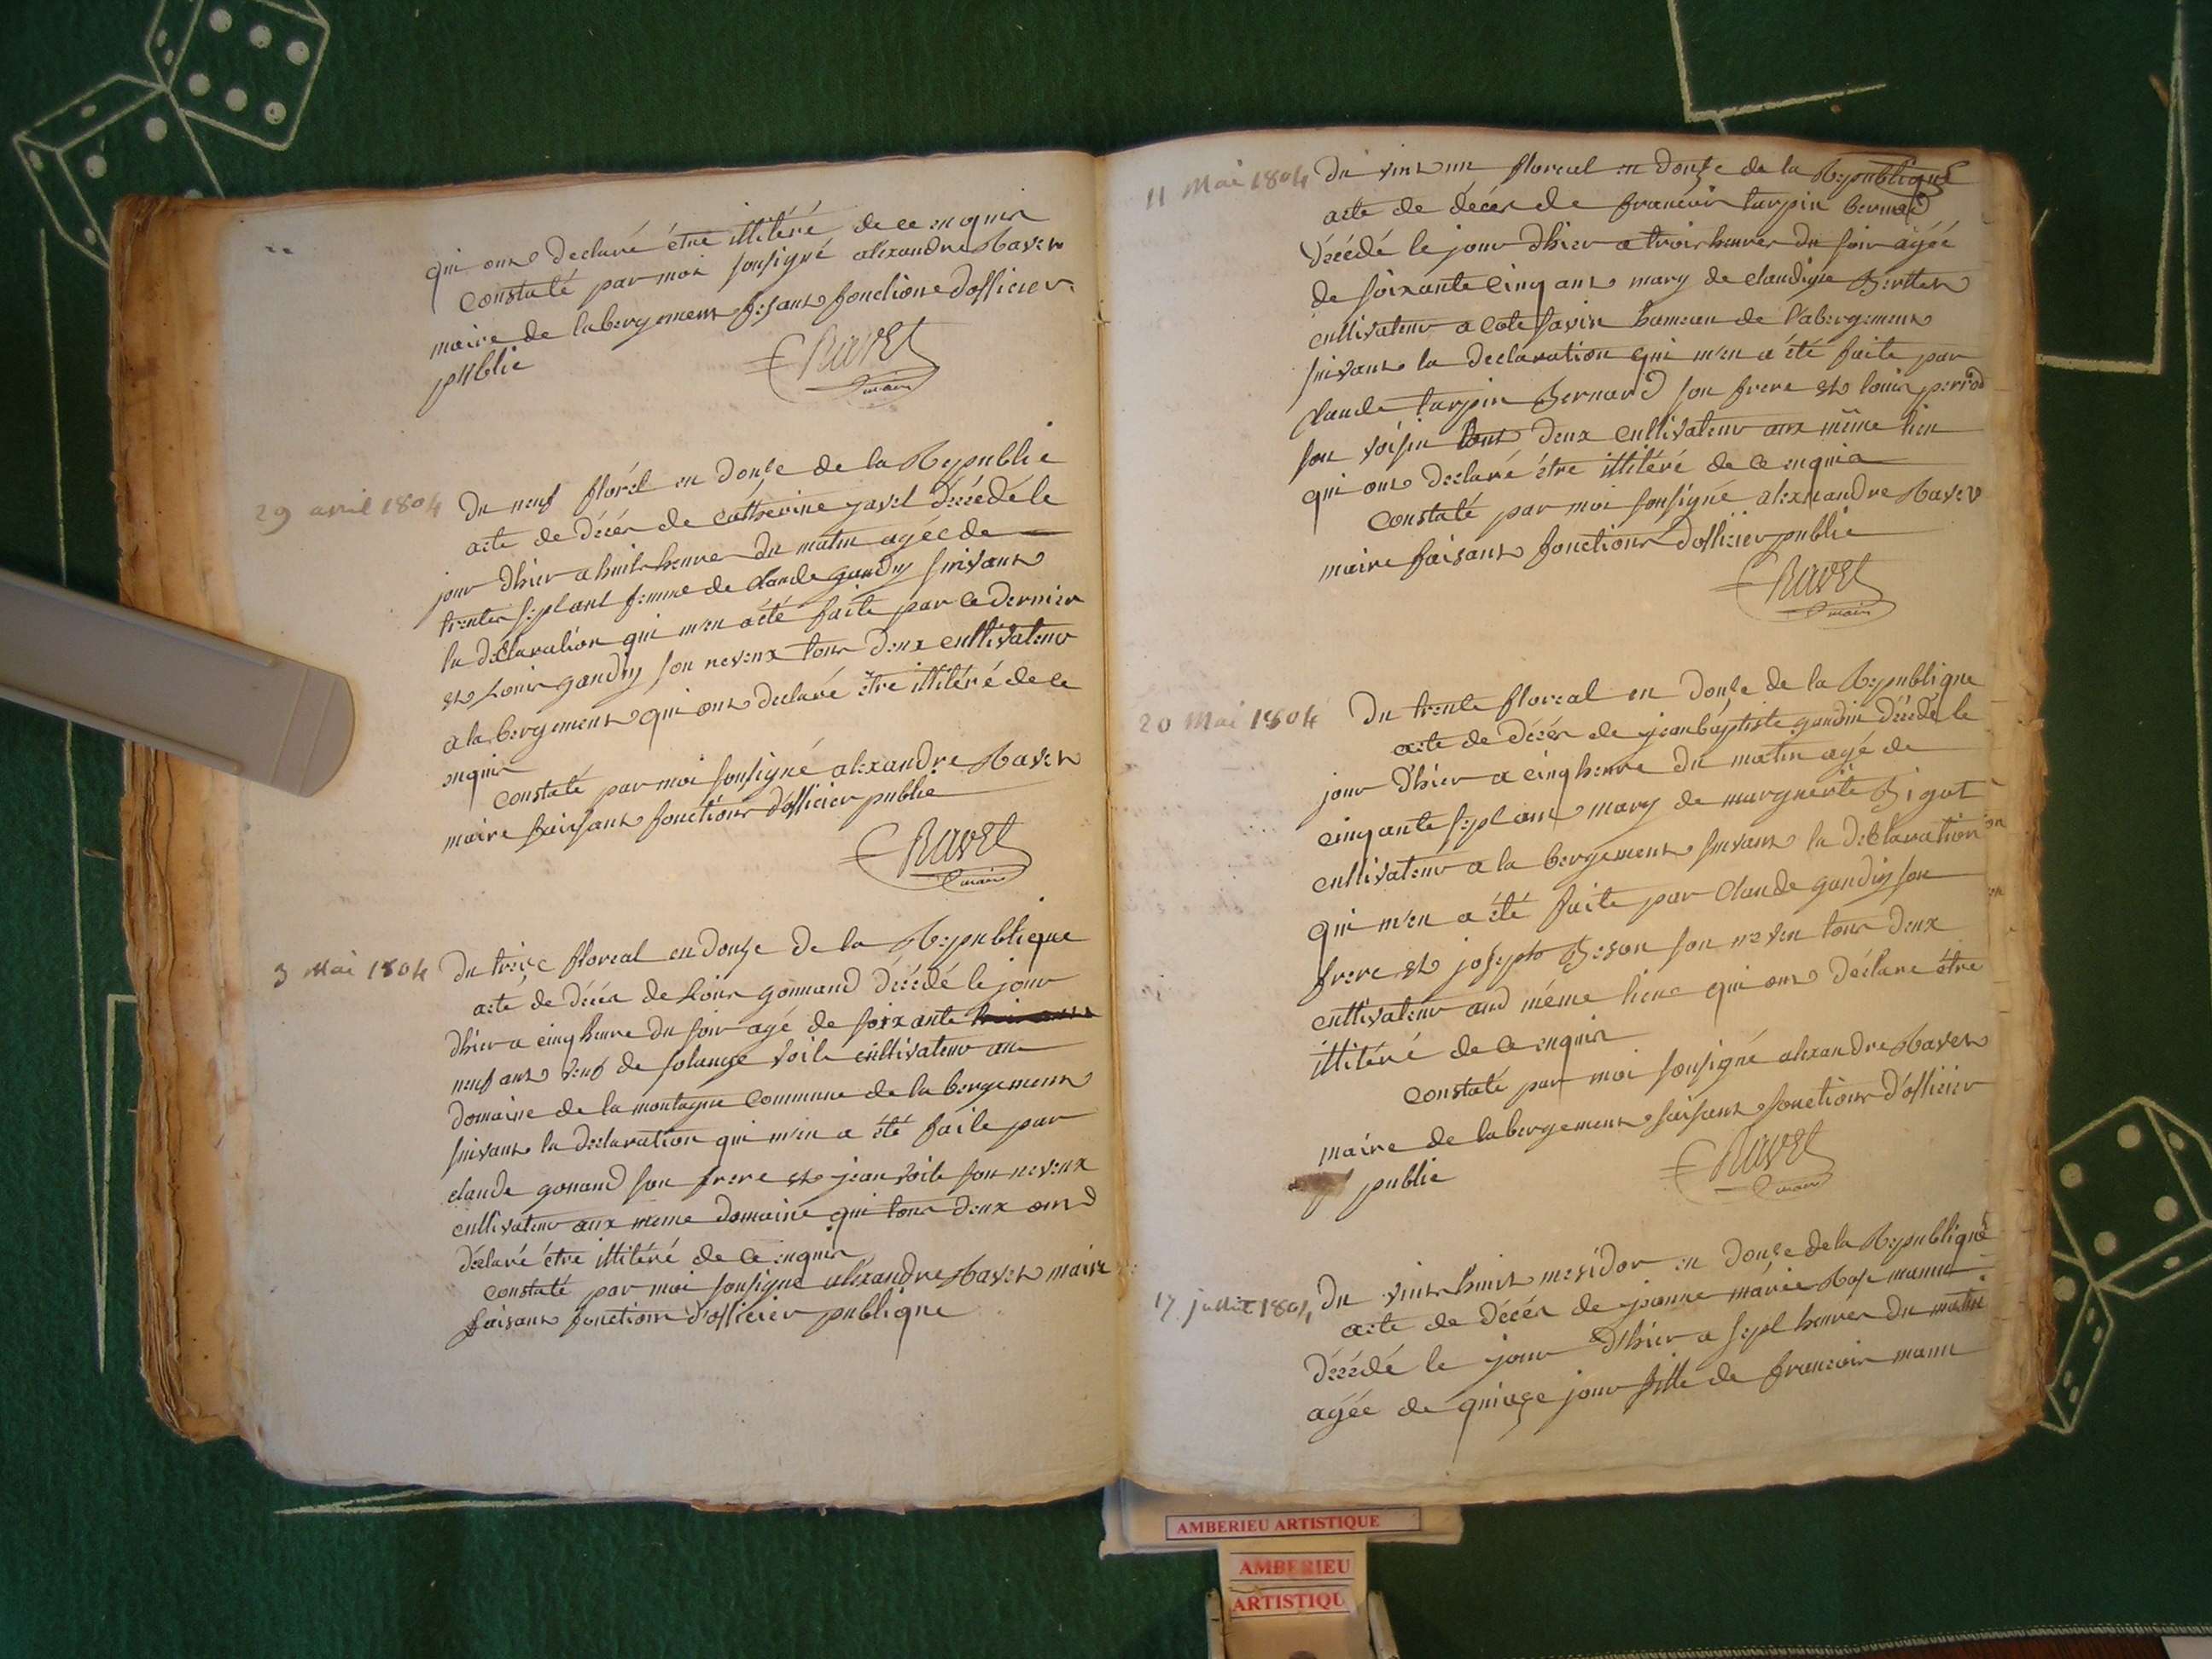 qui ont declaré étre illitéré de ce enquis
Constaté par moi sousigné alexandre Ravet
maire de labergement fesant fonctions d'officier
public
Ravet
maire
29 avril 1804
Du neuf floréal en douse de la Republic
acte de décés de cathérine javel décédé le
jour dhier a huit heure du matin agée de
trente sept ans femme de claude gaudy suivant
la déclaration qui m'en a été faite par ce dernier
et Louis gaudy son neveux tous deux cultivateur
a labergement qui ont declaré étre illitéré de ce
enquis
Constaté par moi sousigné alexandre Ravet
maire faisant fonctions d'officier public
Ravet
maire
3 Mai 1804
Du treise floreal en douse de la Republique
acte de décés de Louis gonnand décédé le jour
dhier a cinq heure du soir agé de soixante
neuf ans veuf de solange voile cultivateur au
domaine de la montagne Commune de labergement
suivant la declaration qui m'en a été faite par
claude gonand son frere et jean voile son neveux
cultivateur aux meme domaine qui tous deux ont
déclaré étre illitéré de ce enquis
constaté par moi sousigné alexandre Ravet maire
faisant fonctions d'officier publique
11 Mai 1804
Du vint un floreal en douse de la Republique
acte de décés de francois turpin bernard
décédé le jour dhier a trois heures du soir agéé
de soixante cinq ans mary de claudine
cultivateur a cote savin hameau de l'abergement
suivant la declaration qui m'en a été faite par
claude turpin Bernard son frere et louis perrod
son voisin tous deux cultivateur aux même lieu
qui ont declaré étre illitéré de ce enquis
Constaté par moi sousigné alexandre Ravet
maire faisant fonctions d'officier public
Ravet
maire
20 Mai 1804
Du trente floreal en douse de la Republique
acte de décés de jean baptiste gaudin décédé le
jour d'hier a cinq heure du matin agé de
cinquante sept ans mary de marguerite Bigot
cultivateur a la bergement suivant la déclaration
qui m'en a été faite par claude gaudin son
frere et joseph Beson son neveu tous deux
cultivateur aud même lieu qui ont déclaré étre
illitéré de ce enquis
Constaté par moi sousigné alexandre Ravet
maire de labergement faisant fonctions d'officier
public
Ravet
maire
17 juillet 1804
Du vint huit mesidor en douse de la Republique
acte de décés de jeanne marie Rose
décédé le jour dhier a sept heures du matin
agée de quinze jour fille de francois
AMBERIEU ARTISTIQUE
AMBERIEU
ARTISTIQU